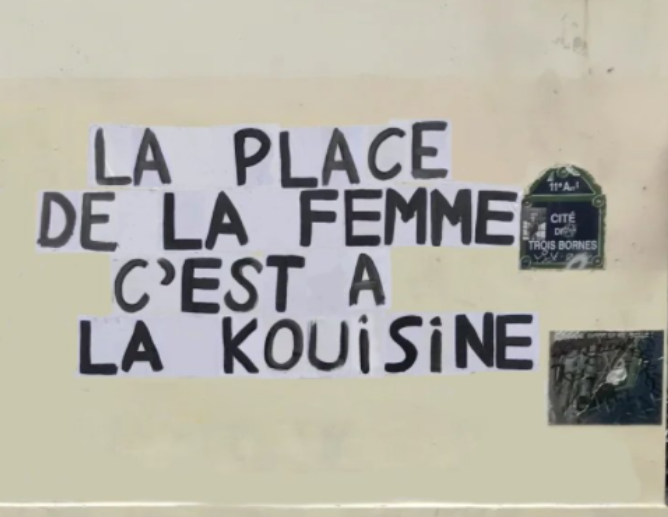 LA PLACE
DE LA FEMME
C'EST A
LA KOUiSiNE
11e Arrt
CITÉ
DES
TROIS BORNES